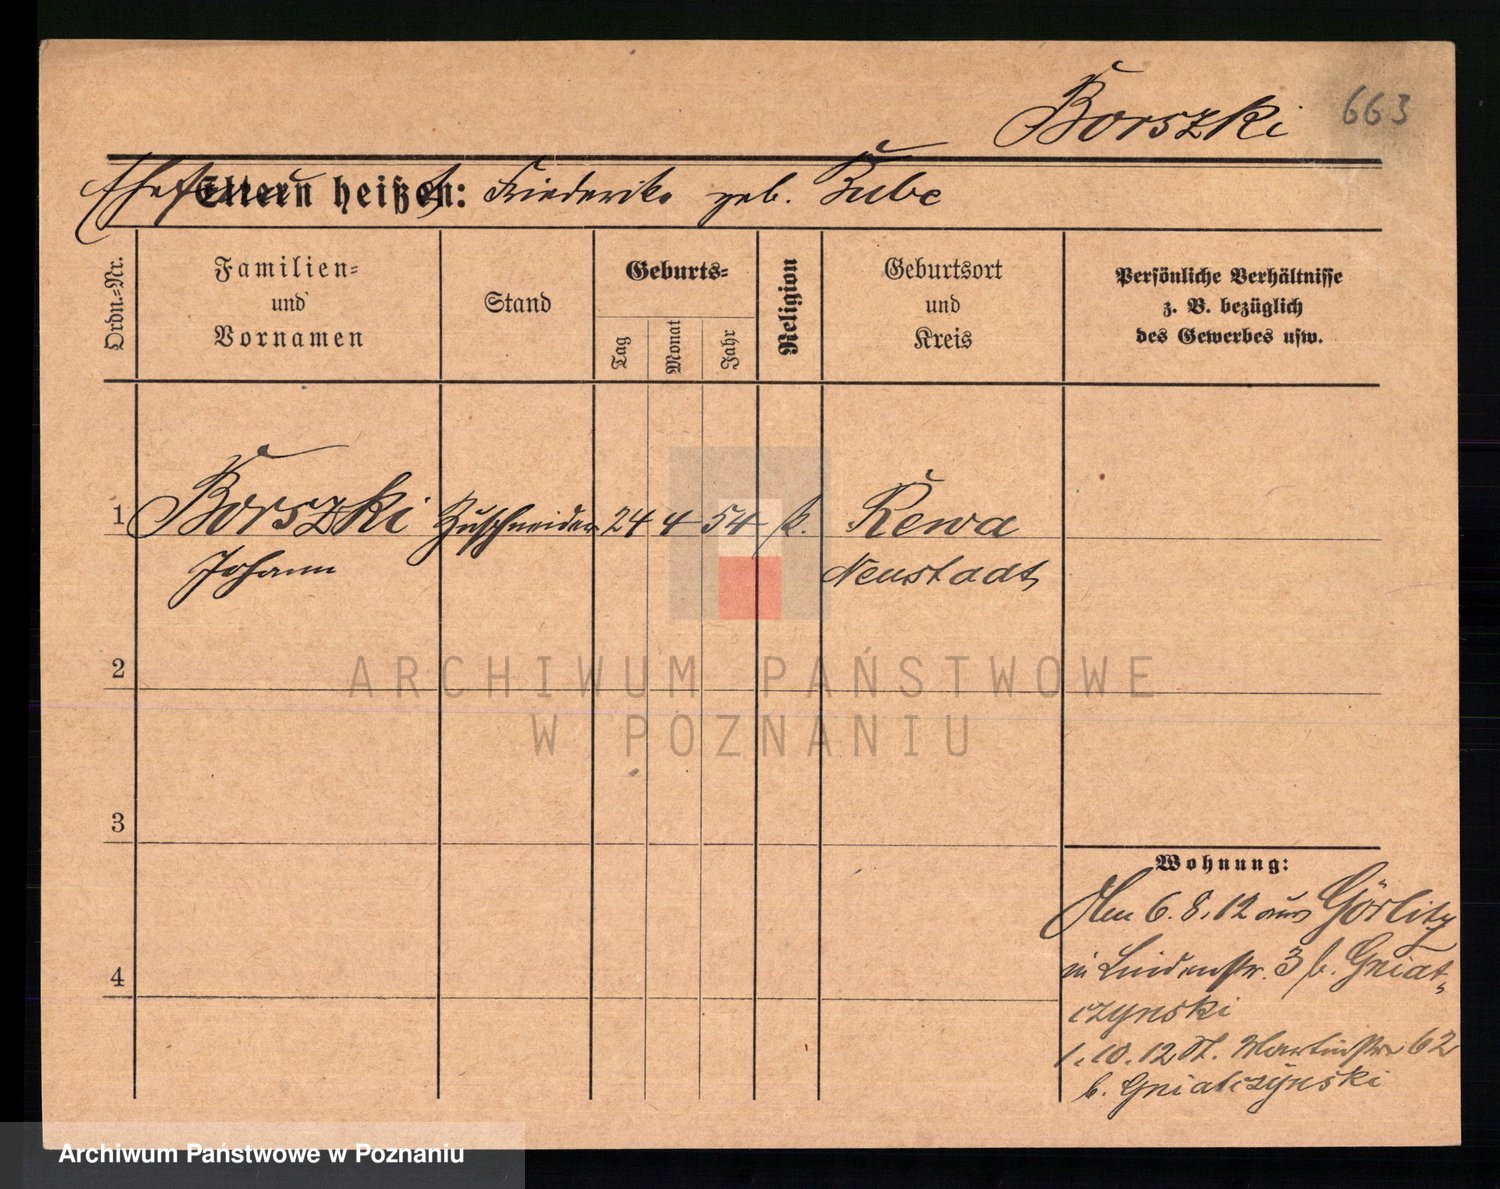 Borszki 663
Eltern heißen: Friederike geb. Kube
Ordn.-Nr.
Familien-
und
Vornamen
Stand
Geburts-
Tag
Monat
Jahr
Religion
Geburtsort
und
Kreis
Persönliche Verhältnisse
z. B. bezüglich
des Gewerbes usw.
1 Borszki Zuschneider 24 4 54 k. Rewa
Johann Neustadt
2
ARCHIWUM PAŃSTWOWE
W POZNANIU
3
Wohnung:
Am 6.8.12 aus Görlitz
in Lindenstr. 3 b. Gniat-
czynski
4
1.10.12 St. Martinstr. 62
b. Gniatczynski
Archiwum Państwowe w Poznaniu